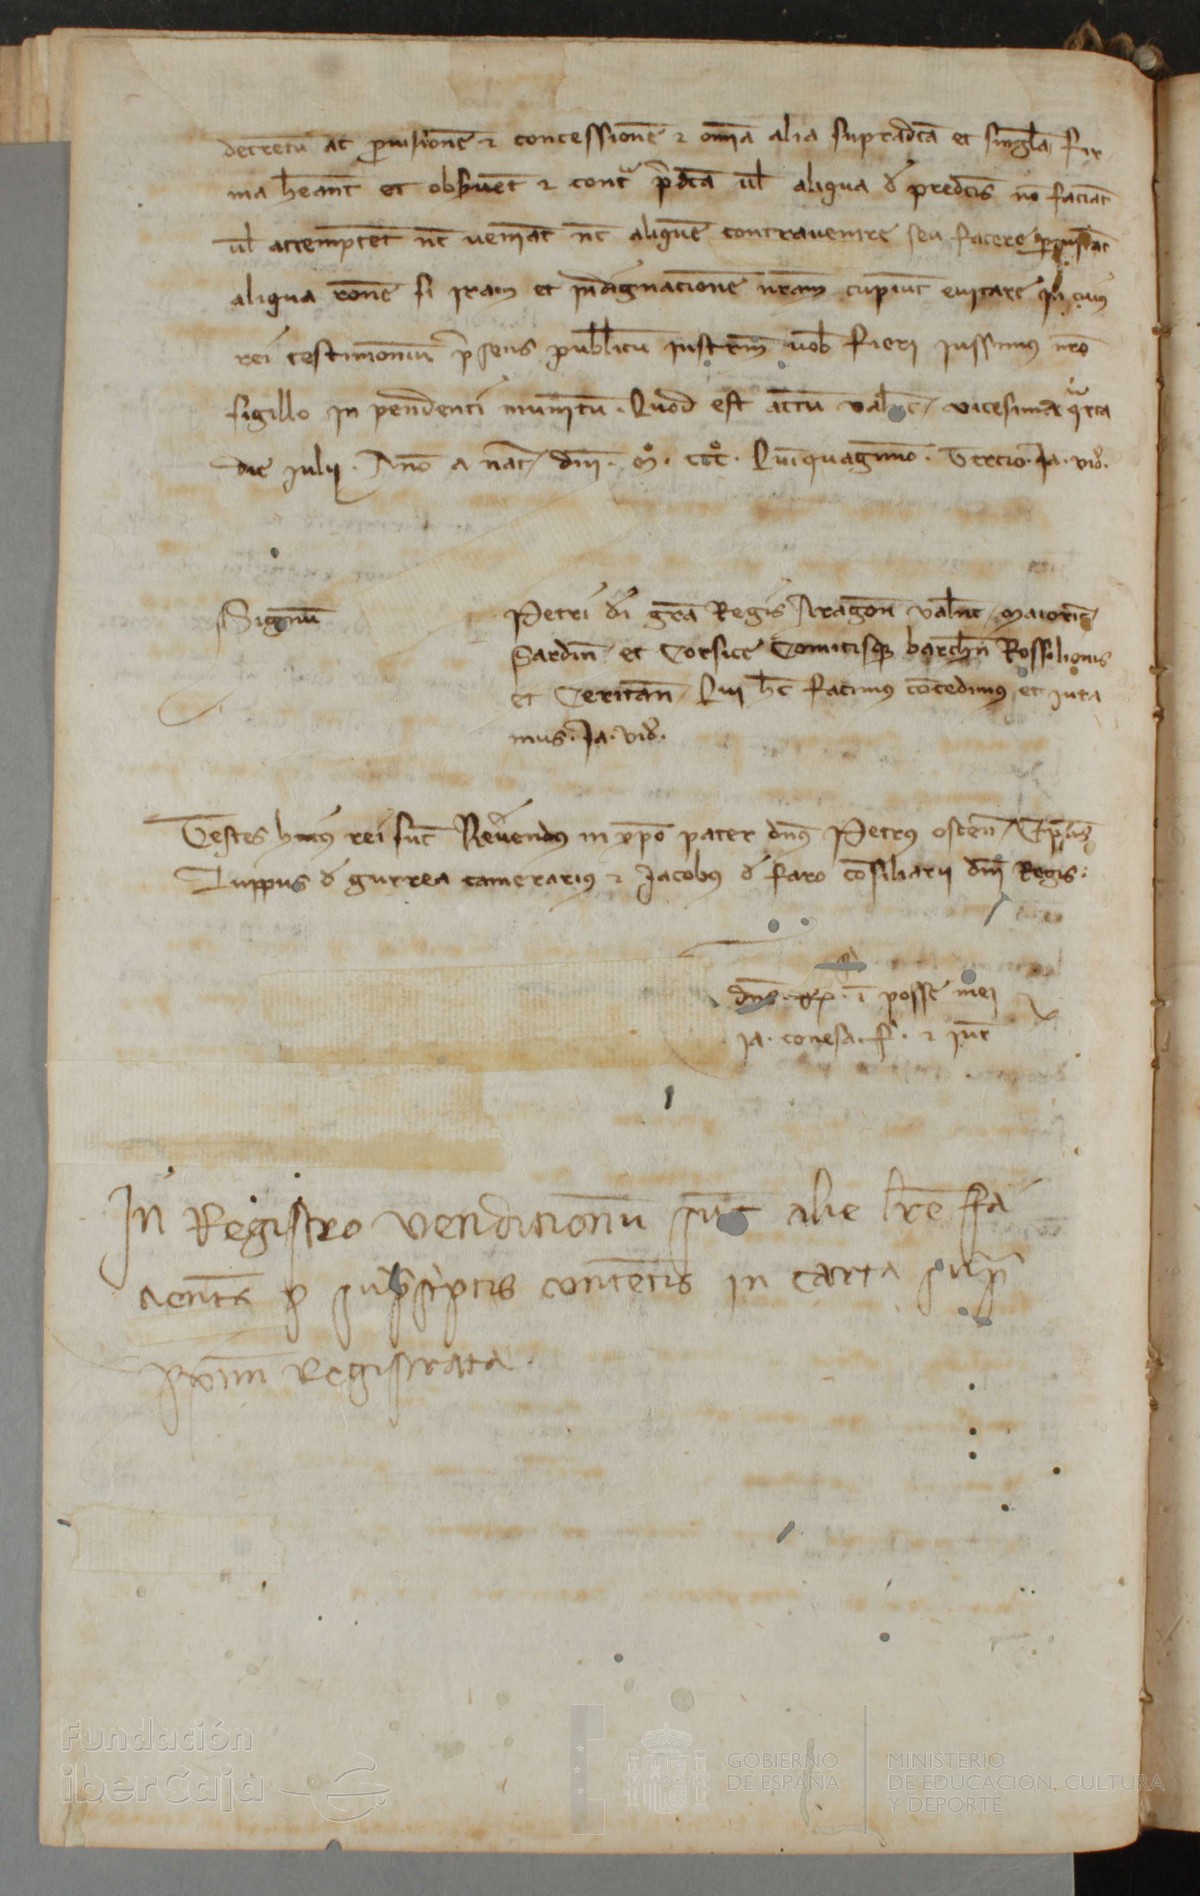 decretū ac ꝓuisionē ⁊ concessionē ⁊ om̄ia alia supradc̄a et singl̄a fir
ma hēant et obẜuent ⁊ cont̄ p̄dc̄a ul̄ aliqua d̄ predc̄is nō faciāt
ul̄ attemptēt nc̄ ueniāt nc̄ aliquē contrauenire seu facere ꝑmittāt
aliqua rōne si iram et indignacionē nr̄am cupiūt euitare In cuius
rei testimoniū p̄sens publicū instrm̄ uob̄ fieri iussimus nr̄o
sigillo in pendenti munitū. Quod est actū Valn̄c vicesima qͣrta
die Iulij. Anō a nat̄ dn̄i. Mͦ. CCCͦ. Quīquagesimo. Tercio. Ja. vid̄.
Signū
Petri dī gr̄a Regis Aragon̄ Valn̄c Maioric̄
Sardin̄ et Corsice Comitisqꝫ barchn̄ Rossilionis
et Ceritan̄ Qui hc̄ facimus cōcedimus et iura
mus. Ja. vid̄.
Testes huius rei sūt Reuendus in xp̄o pater dn̄s Petrus oscen̄ Ep̄us
Luppus d̄ gurrea camerarius ⁊ Jacobus d̄ faro cōsiliarij dn̄i Regis:
dn̄s. Rex. ī posse mei
Ja. conesa. f̄. ⁊ iūc
In Registro vendicionū sūt alie lr̄e fa
cient̄ ꝑ subsc̄ptis contētis in carta sup̄
ꝓxim̄ Registrata.
Fundación
iberCaja
GOBIERNO
DE ESPAÑA
MINISTERIO
DE EDUCACIÓN, CULTURA
Y DEPORTE